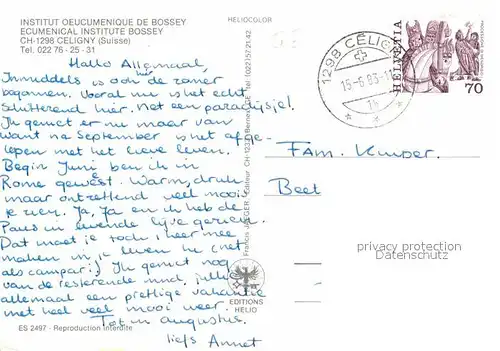 INSTITUT OEUCUMENIQUE DE BOSSEY
ECUMENICAL INSTITUTE BOSSEY
CH-1298 CELIGNY (Suisse)
Tel. 022 76 - 25 - 31
HELIOCOLOR
Hallo Allemaal,
Inmiddels is ook hier de zomer
begonnen. Vooral nu is het echt
schitterend hier. Wat een paradijsje!
Ik geniet er nu maar van
want na September is het afge-
lopen met het lieve leven.
Begin Juni ben ik in
Rome geweest. Warm, druk
maar ontzettend veel moois
te zien. Ja, Ja en ik heb de
Paus in levende lijve gezien.
Dat moet je toch 1 keer mee
maken in je leven hè (net
als campari!) Ik geniet nog
van de resterende mnd. jullie
allemaal een prettige vakantie
met heel veel mooi weer
Tot in augustus.
liefs Annet
ES 2497 - Reproduction interdite
Francis JAEGER - Editeur CH-1233 Bernex-GE Tel. (022) 57.21.42
EDITIONS
HELIO
1298 CÉLIGNY
15-6.83-11
HELVETIA
70
Fam. Kuiper.
Beet
privacy protection
Datenschutz